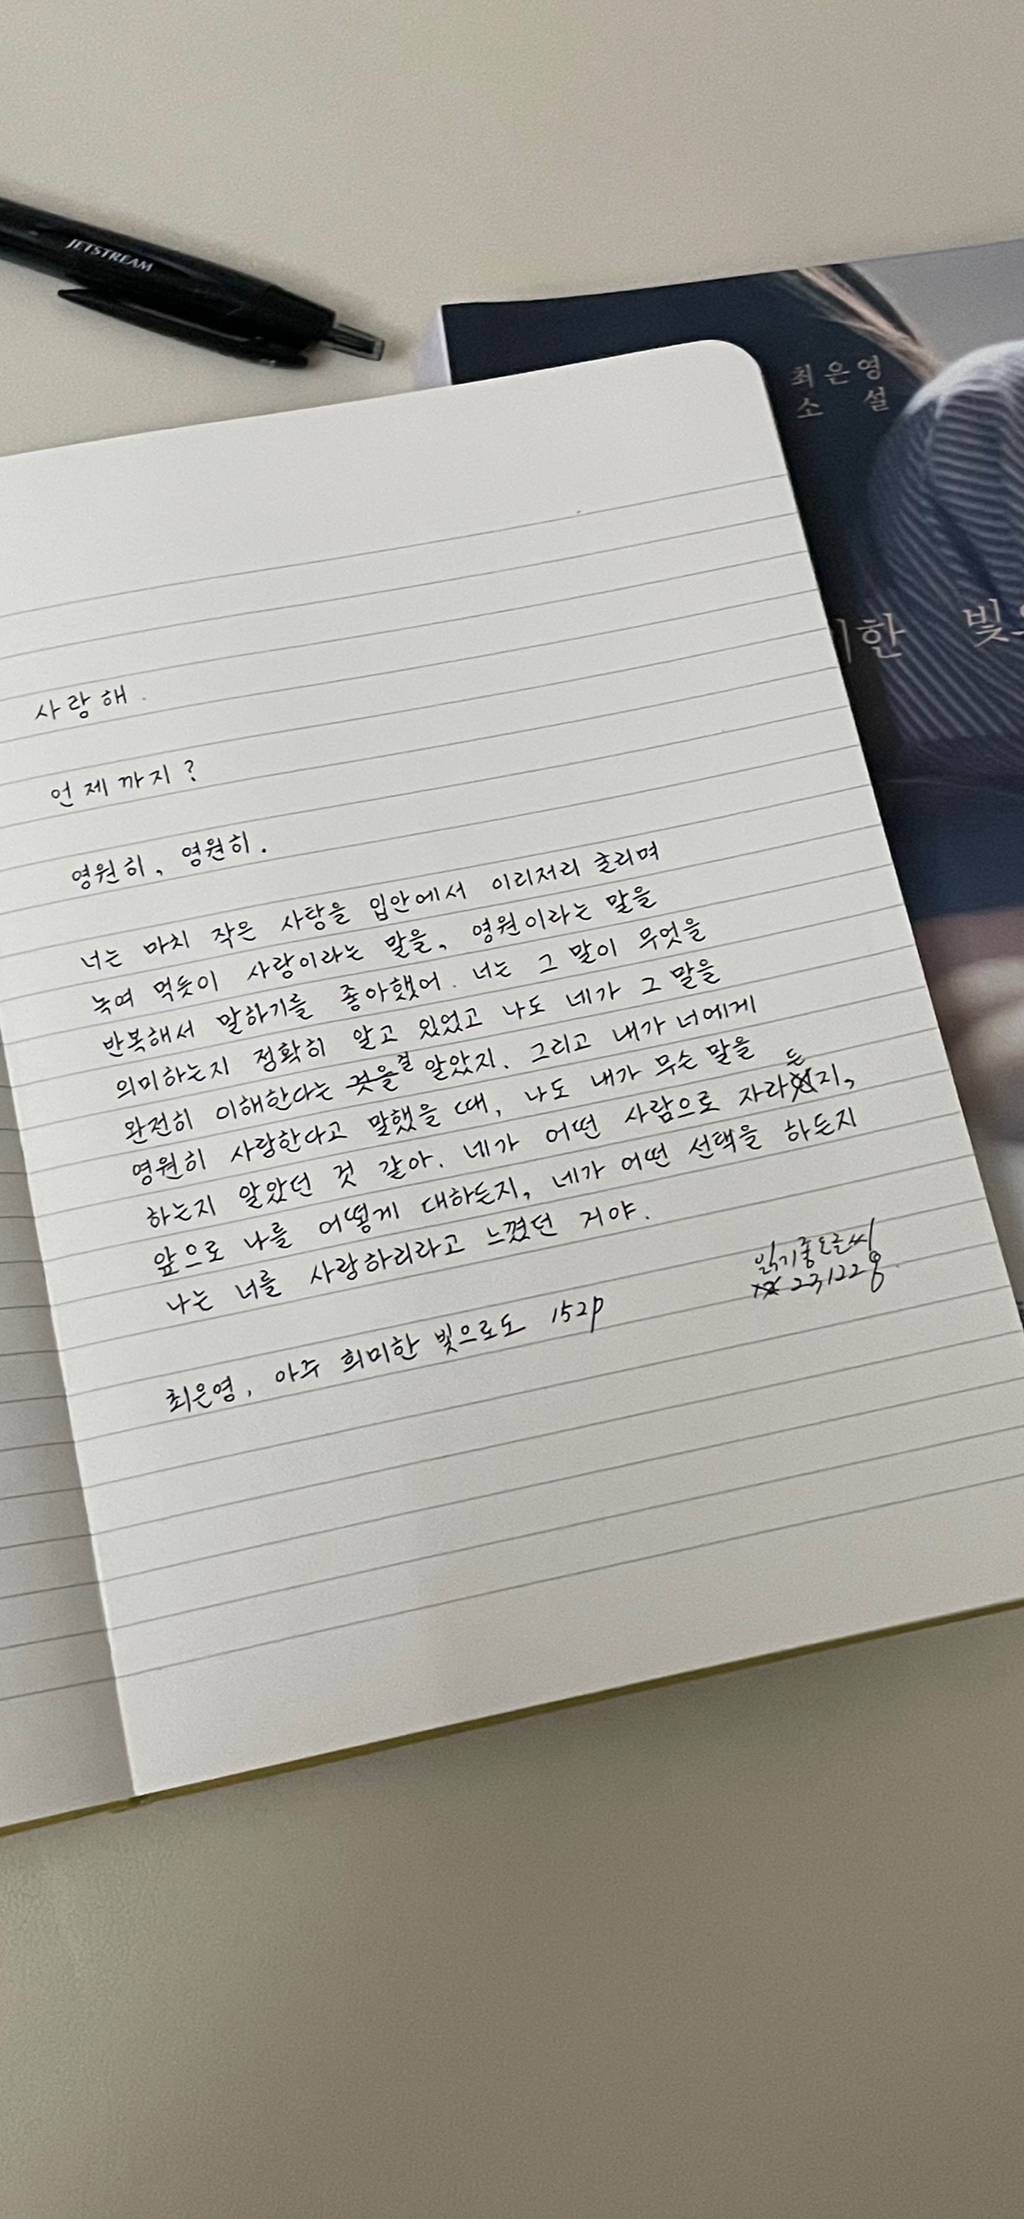 JETSTREAM
최은영
소설
한 빛
사랑해.
언제까지?
영원히, 영원히.
너는 마치 작은 사탕을 입안에서 이리저리 굴리며
녹여 먹듯이 사랑이라는 말을, 영원이라는 말을
반복해서 말하기를 좋아했어. 너는 그 말이 무엇을
의미하는지 정확히 알고 있었고 나도 네가 그 말을
완전히 이해한다는 것을 걸 알았지. 그리고 내가 너에게
영원히 사랑한다고 말했을 때, 나도 내가 무슨 말을
하는지 알았던 것 같아. 네가 어떤 사람으로 자라든지,
앞으로 나를 어떻게 대하든지, 네가 어떤 선택을 하든지
나는 너를 사랑하리라고 느꼈던 거야.
읽기좋도글씨
231228
최은영, 아주 희미한 빛으로도 152p